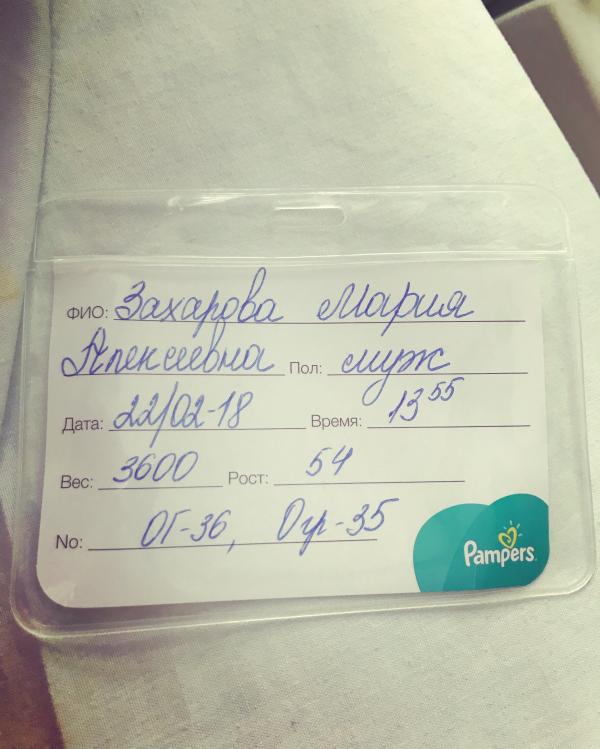 ФИО: Захарова Мария
Алексеевна Пол: муж
Дата: 22/02-18 Время: 13 55
Вес: 3600 Рост: 54
No: ОГ-36, Огр-35
Pampers